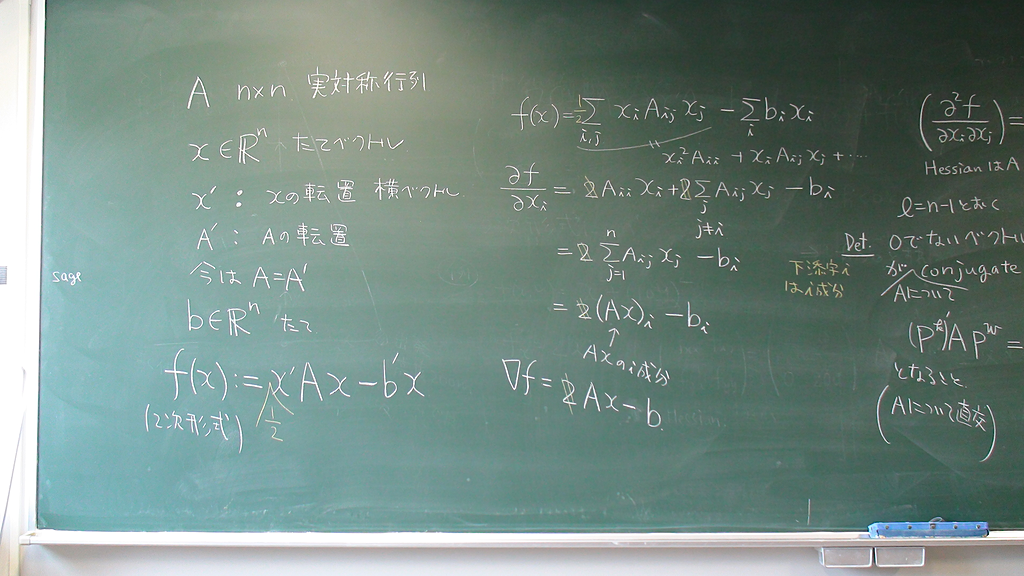 sage
A n×n 実対称行列
x∈ℝⁿ たてベクトル
x′: xの転置 横ベクトル
A′: Aの転置
今は A=A′
b∈ℝⁿ たて
f(x):=½x′Ax−b′x
(2次形式)
f(x)=½∑_{i,j} x_i A_{ij} x_j − ∑_i b_i x_i
x_i²A_{ii} + x_i A_{ij} x_j + …
∂f/∂x_i = 2A_{ii} x_i + 2∑_{j≠i} A_{ij} x_j − b_i
= 2∑_{j=1}^{n} A_{ij} x_j − b_i
= 2(Ax)_i − b_i
Axのi成分
∇f = 2Ax−b
下添字i
はi成分
(∂²f/∂x_i∂x_j) =
HessianはA
ℓ=n−1とおく
Def. 0でないベクトル
が conjugate
Aについて
′A p =
となること
(Aについて直交)